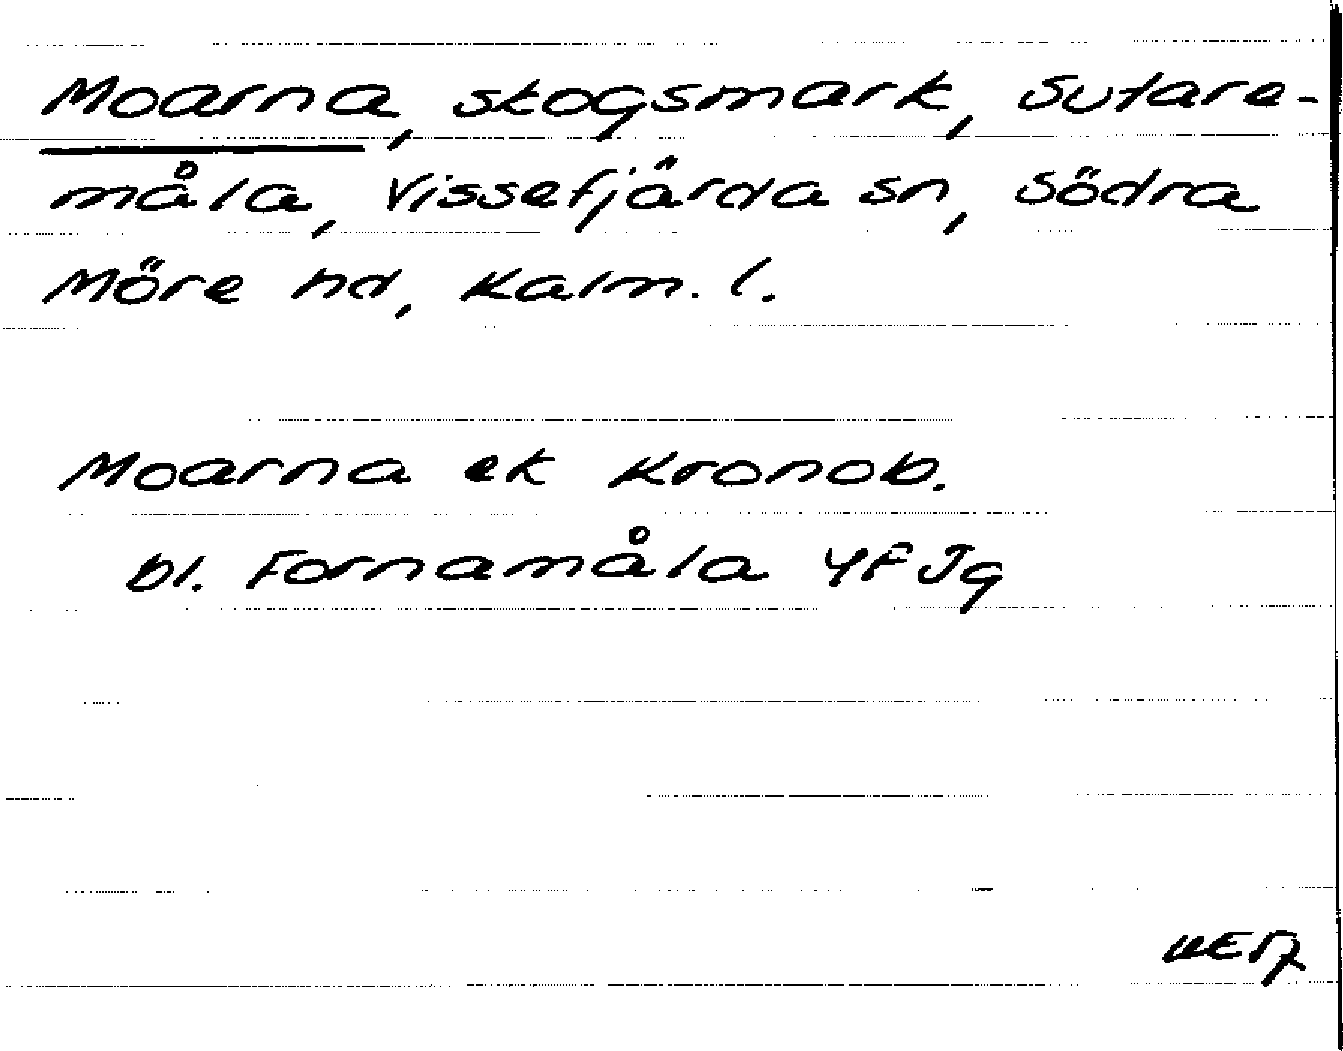 Moarna, skogsmark, Sutare-
måla, Vissefjärda sn, Södra
Möre hd, Kalm. l.
Moarna ek Kronob.
bl. Fornamåla 4F Jg